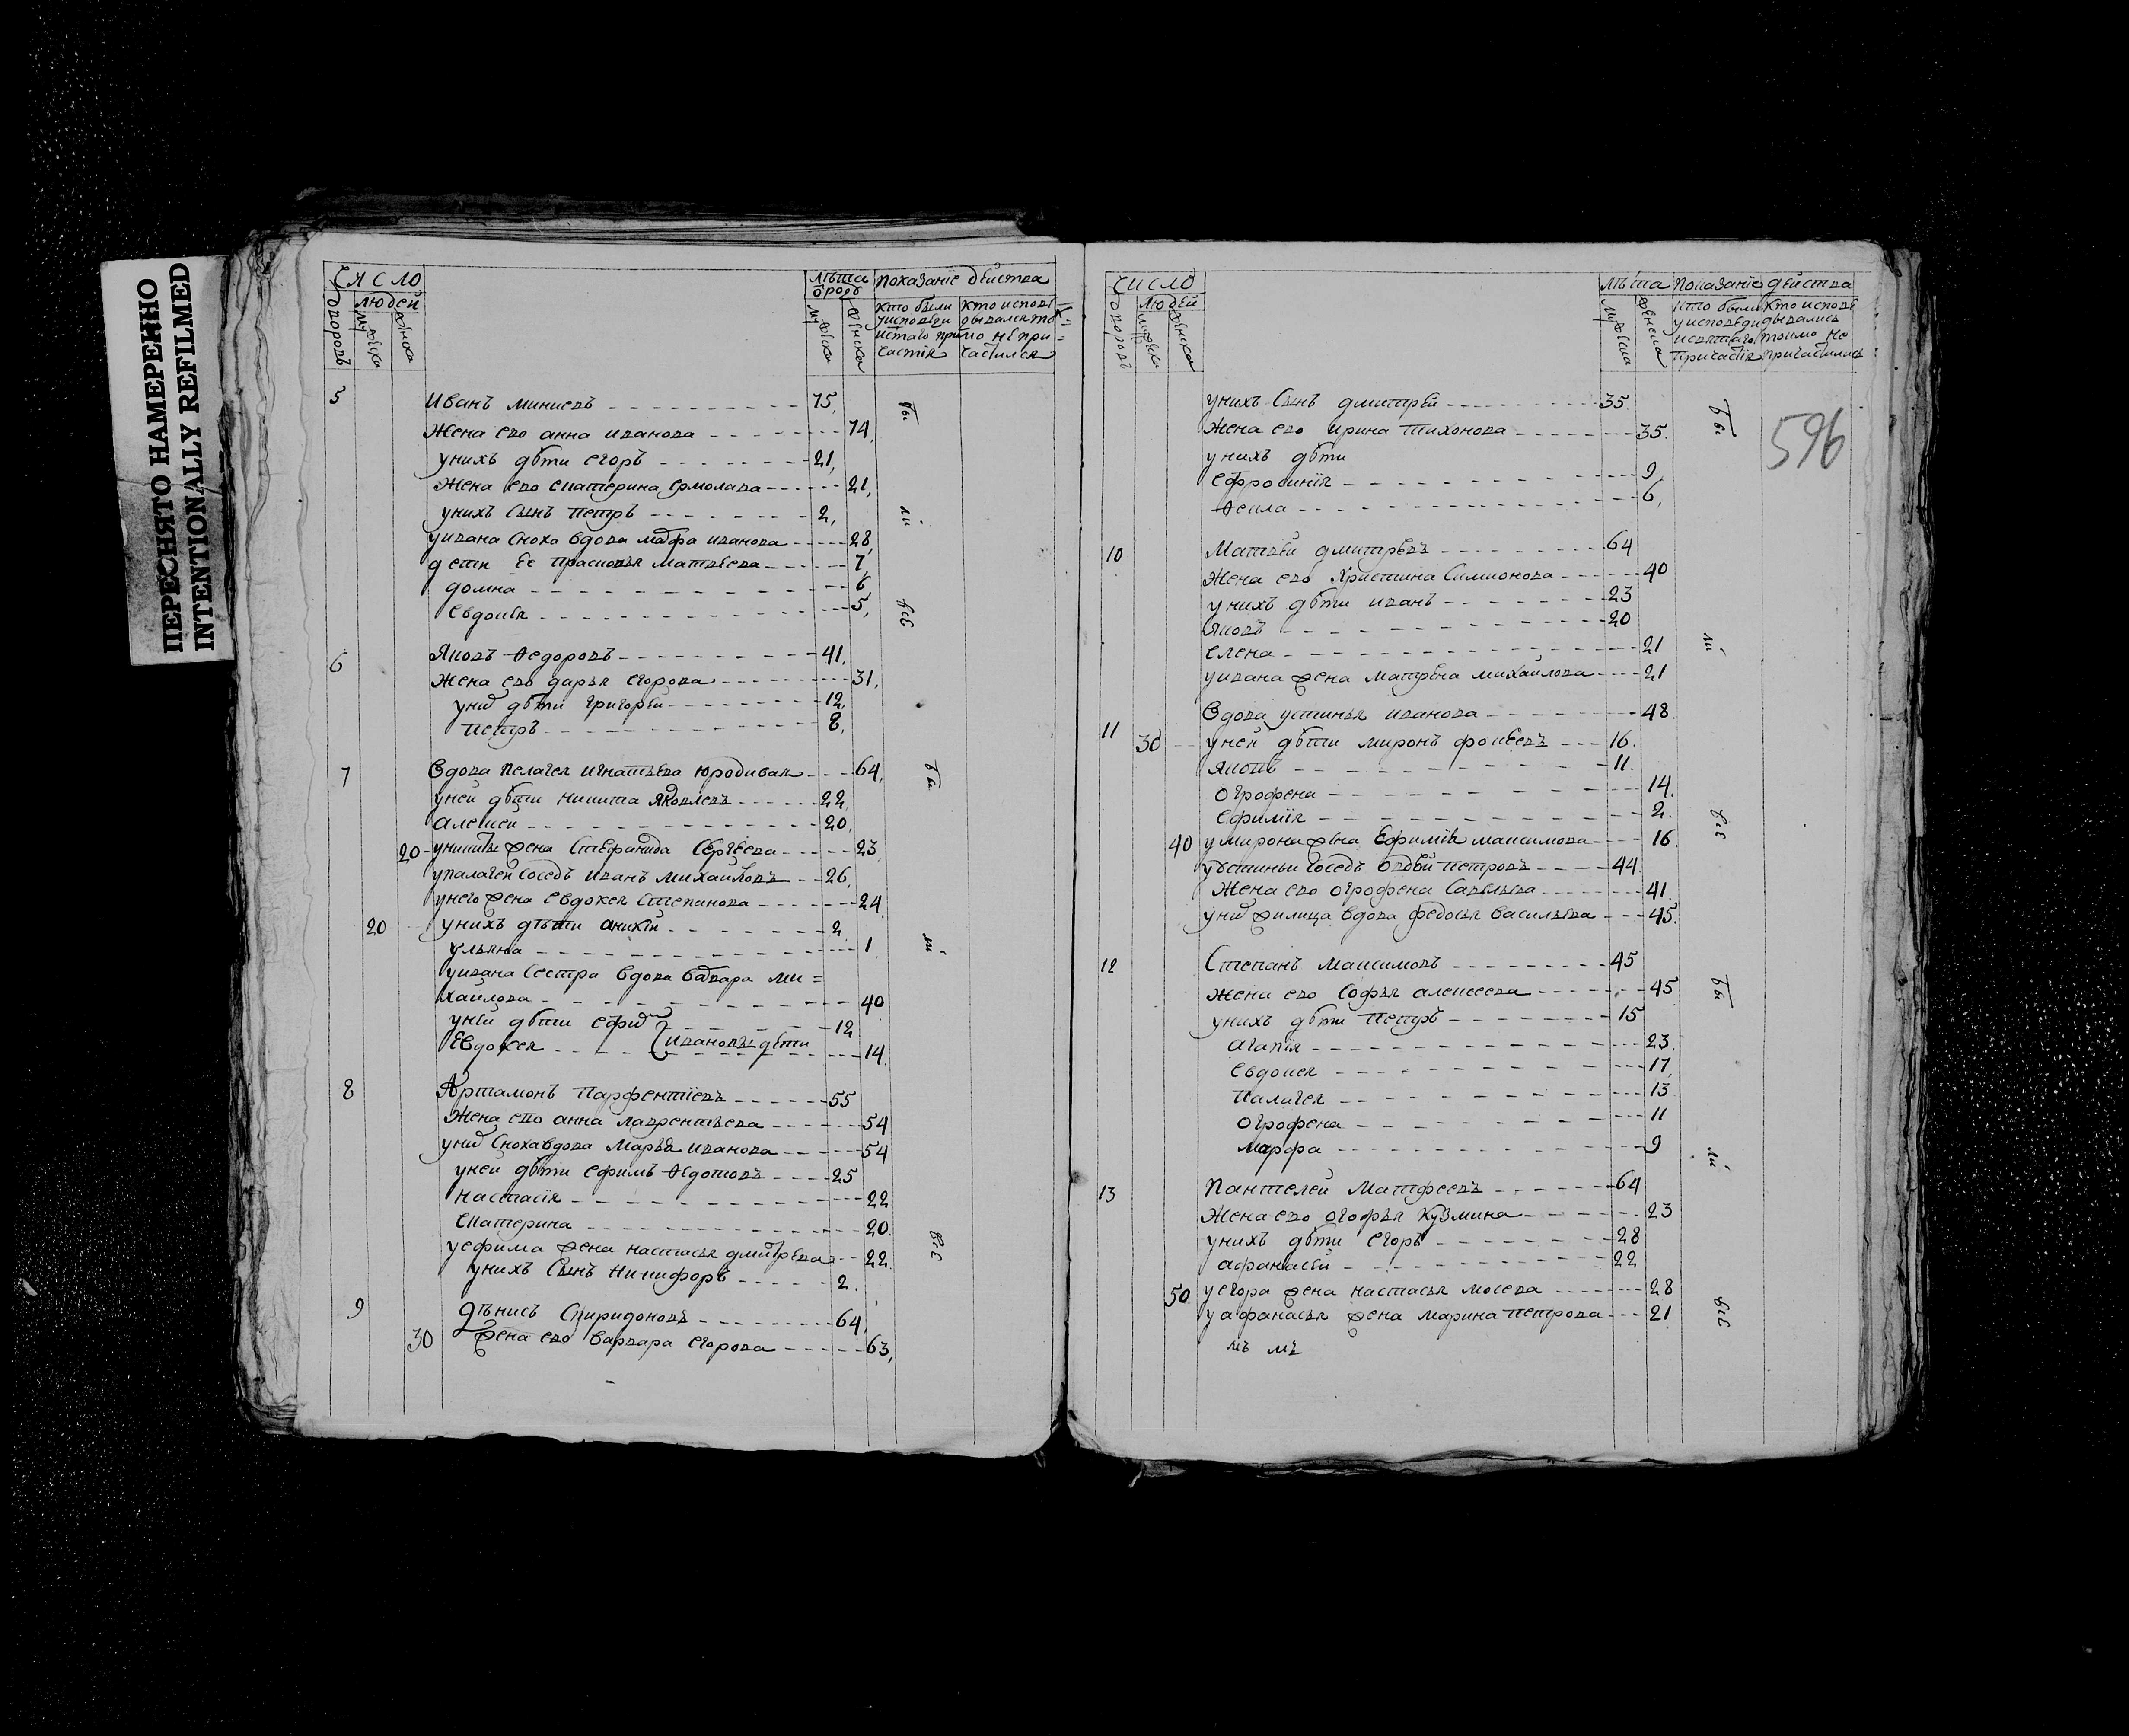 ПЕРЕСНЯТО НАМЕРЕННО
INTENTIONALLY REFILMED
ЧИСЛО
людей
дворовъ
мужска
женска
Лѣта
ѿродꙋ
мужска
женска
показанїе действа
кто были
уисповеди
исвтаго при
частїя
кто исповѣ
дывался то
мо нѣ при=
частился
5 Иванъ миниевъ 75,
жена ево анна иванова 74,
унихъ дѣти егоръ 21,
жена ево екатерина ермолава 21,
унихъ сынъ петръ 2,
уивана сноха вдова мафра иванова 28,
дети ее прасковья матвѣева 7,
домна 6
евдокия 5,
6 Яковъ ѳедоровъ 41,
жена ево дарья егорова 31,
уних дѣти григорѣй 12,
петръ 8,
7 Вдова пелагея игнатьева юродивая 64,
уней дѣти никита яковлевъ 22,
алексей 20,
20 уникиты жена стефанида сергѣева 23,
упалагеи соседъ иванъ михаиловъ 26,
унего жена евдокея степанова 24
20 унихъ дѣти аникїи 2
ульяна 1
уивана сестра вдова варвара ми=
хаилова 40
уней дѣти ефим 12
Евдокея ивановы дѣти 14,
8 Артамонъ парфентїевъ 55
жена ево анна лаврентьева 54
уних сноха вдова марья иванова 54
уней дѣти ефимъ ѳедотовъ 25
настасїя 22
екатерина 20
уефима жена настасья дмитрева 22
унихъ сынъ никифоръ 2.
9 Дѣнисъ спиридоновъ 64,
30 жена ево варвара егорова 63,
ЧИСЛО
людей
дворовъ
мужска
женска
лѣта
мужска
женска
показанїе действа
кто были
уисповѣди
исвятаго
причастїя
кто исповѣ
дывались
токмо не
причастились
596
унихъ сынъ дмитрѣй 35
жена ево ирина тихонова 35.
унихъ дѣти
ефросинїя 9
ѳекла 6,
10 Матвѣй дмитрѣвъ 64
жена ево христина симионова 40
унихъ дѣти иванъ 23
яковъ 20
елена 21
уивана жена матрѣна михаилова 21
11 Вдова устинья иванова 48
30 уней дѣти миронъ фокѣевъ 16.
якопъ 11.
огрофена 14.
ефимїя 2.
40 умирона жена Ефимїя максимова 16.
уустиньи соседъ авдѣй петровъ 44
жена ево огрофена савельева 41.
уних жилица вдова федосья васильева 45.
12 Степанъ максимовъ 45
жена ево софья алексеева 45
унихъ дѣти петръ 15
агапїя 23.
евдокея 17,
палагея 13
огрофена 11
марфа 9
13 Пантелей Матфеевъ 64
жена ево огофья кузмина 23
унихъ дѣти егоръ 28
афанасѣй 22
50 уегора жена настасья мосева 28
уафанасья жена марина петрова 21
мъ мъ
бы
ли
всѣ
бы
ли
всѣ
бы
ли
всѣ
бы
ли
всѣ